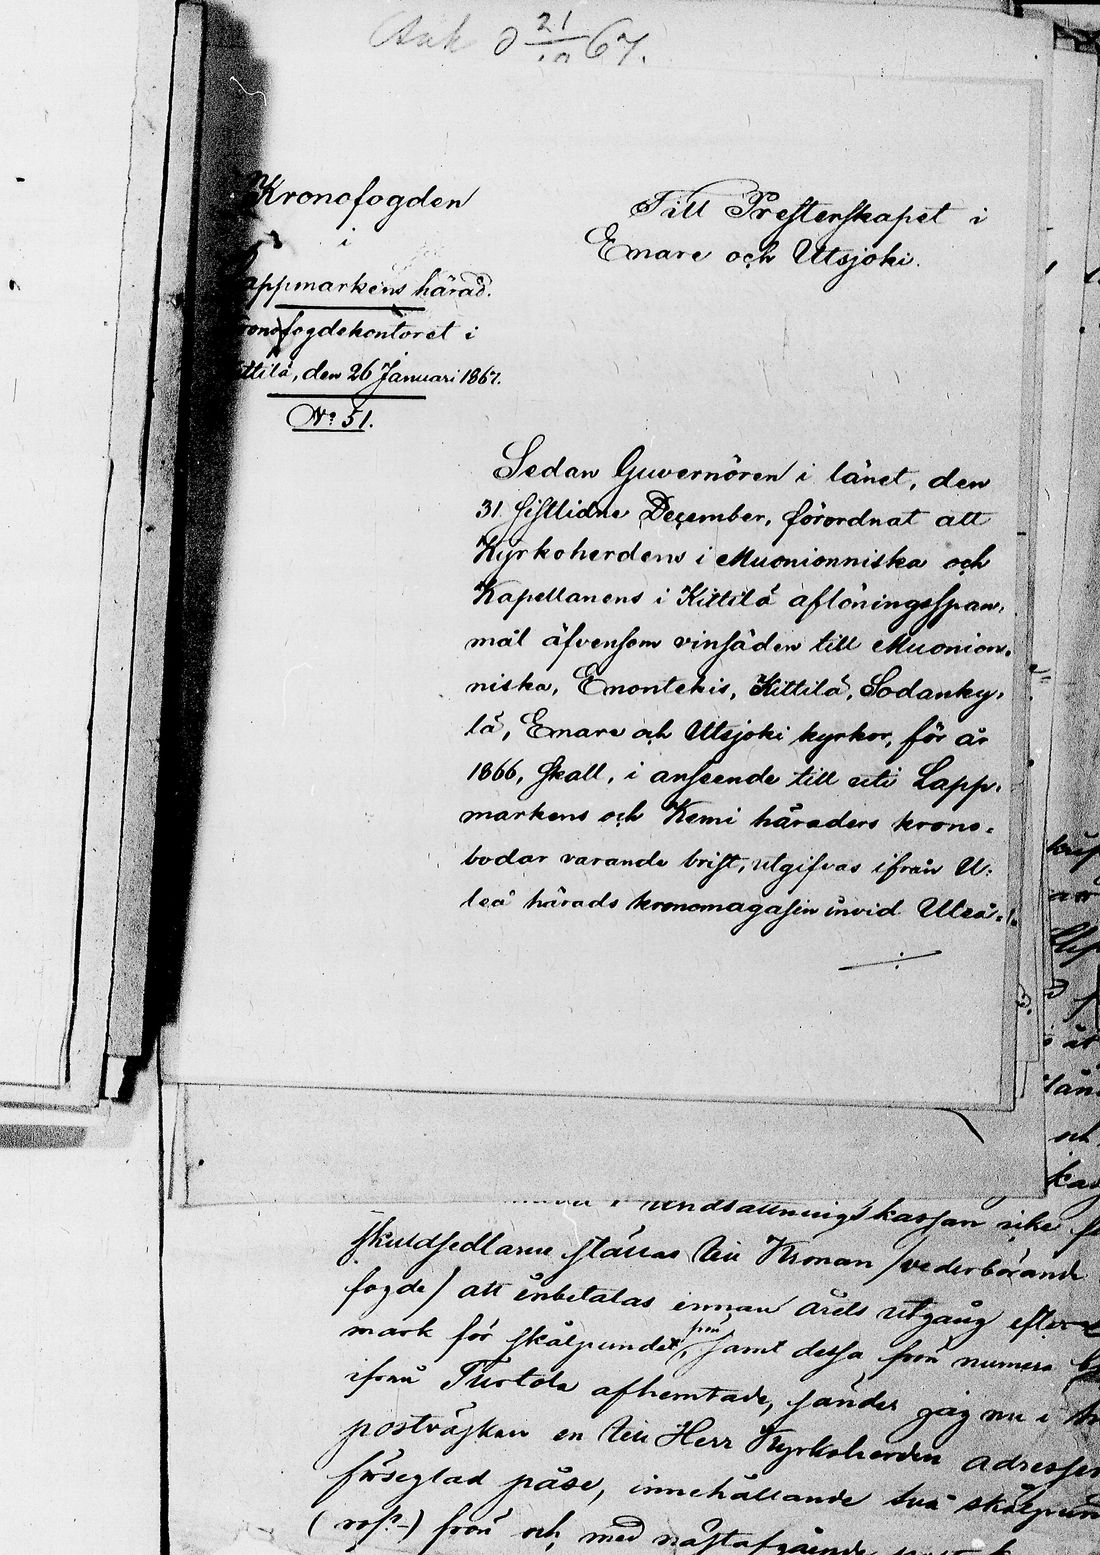 Ank d 21/10 67.
Kronofogden
i
Lappmarkens härad.
Kronofogdekontoret i
Kittilä, den 26 Januari 1867.
No 51.
Till Presterskapet i
Enare och Utsjoki.
Sedan Guvernören i länet, den
31 sistlidne December, förordnat att
Kyrkoherdens i Muonionniska och
Kapellanens i Kittilä aflöningsspan,
mål äfvensom vinsäden till Muonion,
niska, Enontekis, Kittilä, Sodanky,
lä, Enare och Utsjoki kyrkor, för år
1866, skall, i anseende till uti Lapp,
markens och Kemi häraders krono,
bodar varande brist, utgifvas ifrån U,
leå härads kronomagasin invid Uleå,
rundsättningskassan icke
skuldsedlarne ställas till Kronan /vederbörande
fogde/ att inbetalas innan årets utgång efter
mark för skålpundet, samt dessa frön numera
ifrån Turtola afhemtade, sänder jag nu i
postväskan en till Herr Kyrkoherden
förseglad påse, innehållande två skålpund
frön och, med nästafgående